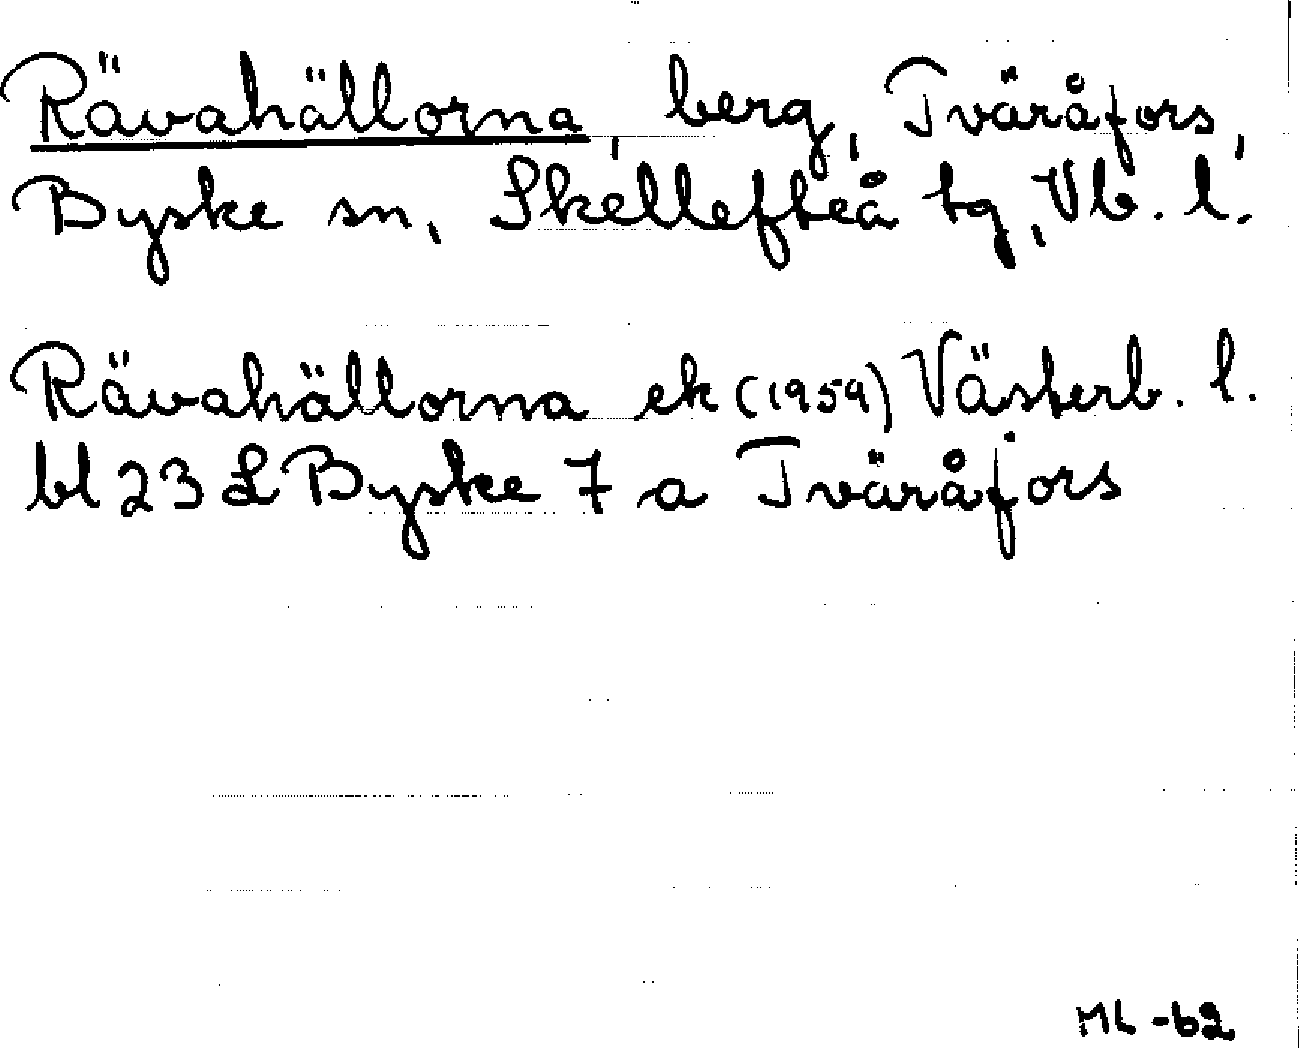 Rävahällorna, berg, Tväråfors,
Byske sn, Skellefteå tg, Vb. l.
Rävahällorna ek (1959) Västerb. l.
bl 23 L Byske 7 a Tväråfors
ML -62